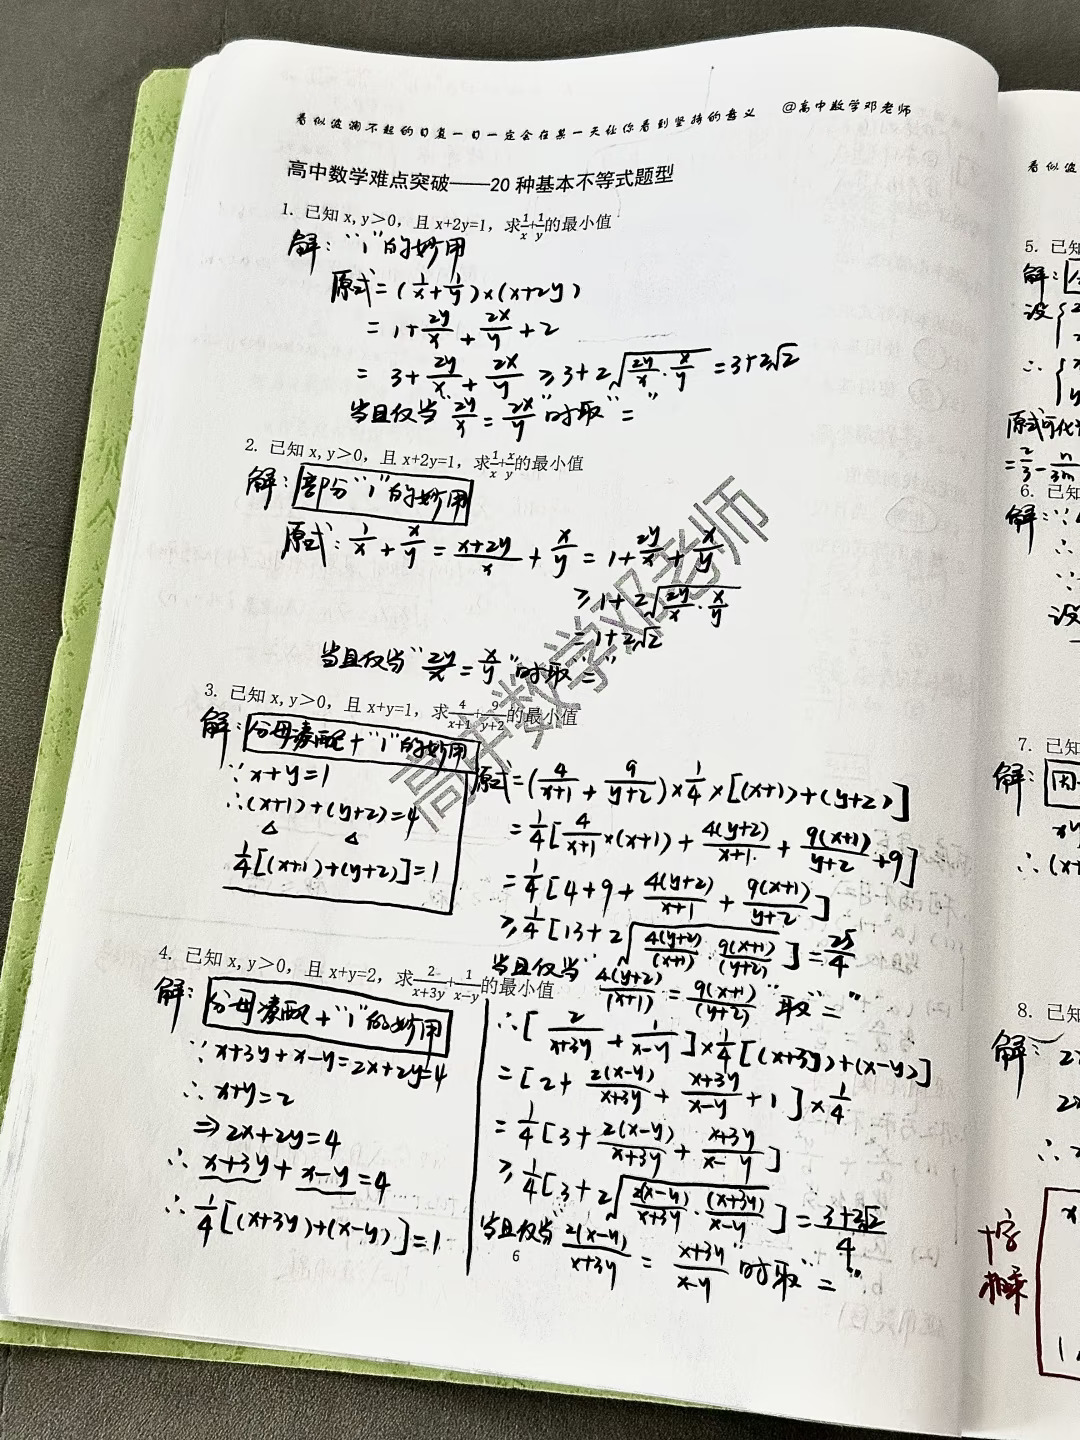 看似波澜不起的日复一日一定会在某一天让你看到坚持的意义 @高中数学邓老师
高中数学难点突破——20 种基本不等式题型
1. 已知 x, y＞0, 且 x+2y=1, 求1/x+1/y的最小值
解: "1"的妙用
原式=(1/x+1/y)×(x+2y)
=1+2y/x+2x/y+2
=3+2y/x+2x/y≥3+2√(2y/x·x/y)=3+2√2
当且仅当"2y/x=2x/y"时取"="
2. 已知 x, y＞0, 且 x+2y=1, 求1/x+x/y的最小值
解: 部分"1"的妙用
原式: 1/x+x/y=(x+2y)/x+x/y=1+2y/x+x/y
≥1+2√(2y/x·x/y)
=1+2√2
当且仅当"2y/x=x/y"时取"="
3. 已知 x, y＞0, 且 x+y=1, 求4/(x+1)+9/(y+2)的最小值
解: 分母凑配+"1"的妙用
∵x+y=1
∴(x+1)+(y+2)=4
1/4[(x+1)+(y+2)]=1
原式=(4/(x+1)+9/(y+2))×1/4×[(x+1)+(y+2)]
=1/4[4/(x+1)×(x+1)+4(y+2)/(x+1)+9(x+1)/(y+2)+9]
=1/4[4+9+4(y+2)/(x+1)+9(x+1)/(y+2)]
≥1/4[13+2√(4(y+2)/(x+1)·9(x+1)/(y+2))]=25/4
当且仅当"4(y+2)/(x+1)=9(x+1)/(y+2)"取"="
4. 已知 x, y＞0, 且 x+y=2, 求2/(x+3y)+1/(x−y)的最小值
解: 分母凑配+"1"的妙用
∵x+3y+x−y=2x+2y=4
∴x+y=2
⇒2x+2y=4
∴x+3y+x−y=4
∴1/4[(x+3y)+(x−y)]=1
∴[2/(x+3y)+1/(x−y)]×1/4[(x+3y)+(x−y)]
=[2+2(x−y)/(x+3y)+(x+3y)/(x−y)+1]×1/4
=1/4[3+2(x−y)/(x+3y)+(x+3y)/(x−y)]
≥1/4[3+2√(2(x−y)/(x+3y)·(x+3y)/(x−y))]=(3+2√2)/4
当且仅当"2(x−y)/(x+3y)=(x+3y)/(x−y)"时取"="
6
高中数学邓老师
看似波
5. 已知
解:
设
∴
原式可化
=2/3−n/3m
6. 已知
解: ∵
∴
∵
设
7. 已知
解: 因
∴(x+
8. 已知
解:
十字
相乘